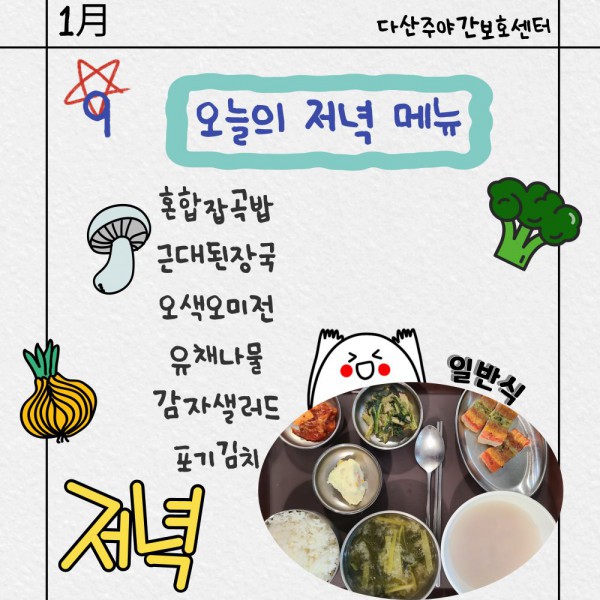 1月
다산주야간보호센터
9
오늘의 저녁 메뉴
혼합잡곡밥
근대된장국
오색오미전
유채나물
감자샐러드
포기김치
일반식
저녁